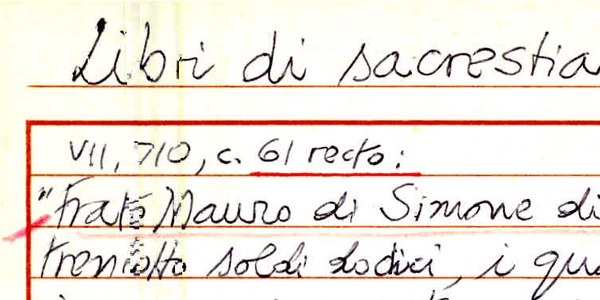 Libri di sacrestia
VII, 710, c. 61 recto:
"Frate Mauro di Simone di
trentotto soldi dodici, i qu